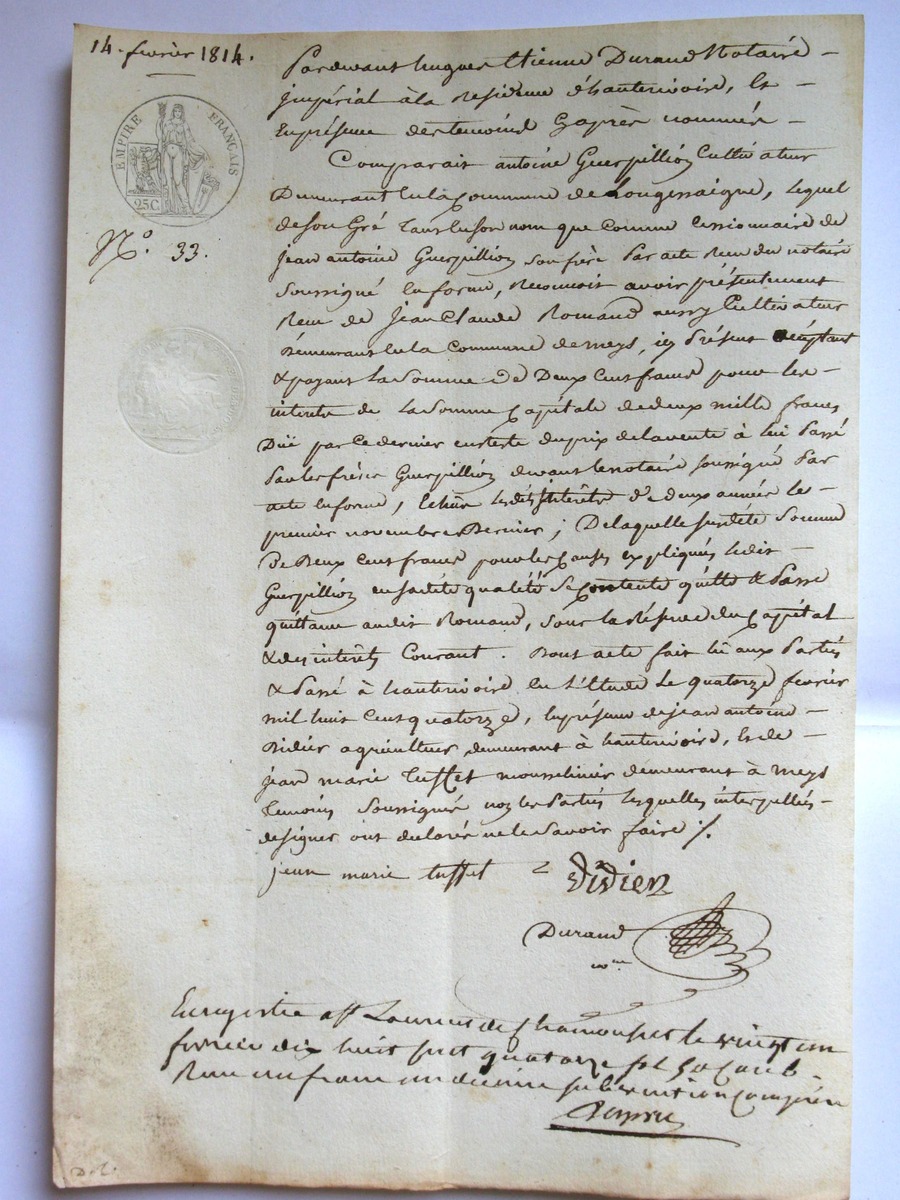 14. fevrier 1814.
EMPIRE FRANÇAIS
25 C
N.º 33.
Pardevant hugues Etienne Durand Notaire
jmpérial à la Residence d'hauterivoire, et
En présence des temoins Cy après nommés
Comparait antoine Guerpillion Cultivateur
Demeurant en la Commune de Longessaigne, lequel
de son Gré tant en son nom que Comme Cessionnaire de
jean antoine Guerpillion son frère Par acte Recu du notaire
soussigné en forme, Reconnoit avoir présentement
Recu de jean Claude Romand aussy Cultivateur
Demeurant en la Commune de meys, icy Présent acceptant
& payant La Somme de Deux Cent francs pour les
interets de La Somme Capitale de deux mille francs
Due par Ce dernier en reste du prix de la vente à lui Passé
Par les frères Guerpillion devant le notaire soussigné Par
acte en forme, Echus lesdits jntérêts de deux année le
premier novembre Dernier ; De laquelle susdite Somme
de Deux Cent francs pour les Causes expliqués ledit
Guerpillion en sadite qualité se Contente quitte & Passe
quittance audit Romand, sous la Réserve du Capital
& des interets Courant. Dont acte fait lu aux Parties
& Passé à hauterivoire en L'Etude Le quatorze fevrier
mil huit Cent quatorze, En présence de jean antoine
Didier agriculteur demeurant à hauterivoire, et de
jean marie tuffet mousselinier demeurant à meys
temoins Soussignés non les Parties lesquelles interpellés
de signer ont declarés ne le Savoir faire ./.
jean marie tuffet
Didier
Durand
Enregistré à St Laurent de Chamousset le vingt un
fevrier dix huit cent quatorze
Recu un franc un decime subvention Comprise
D.L.